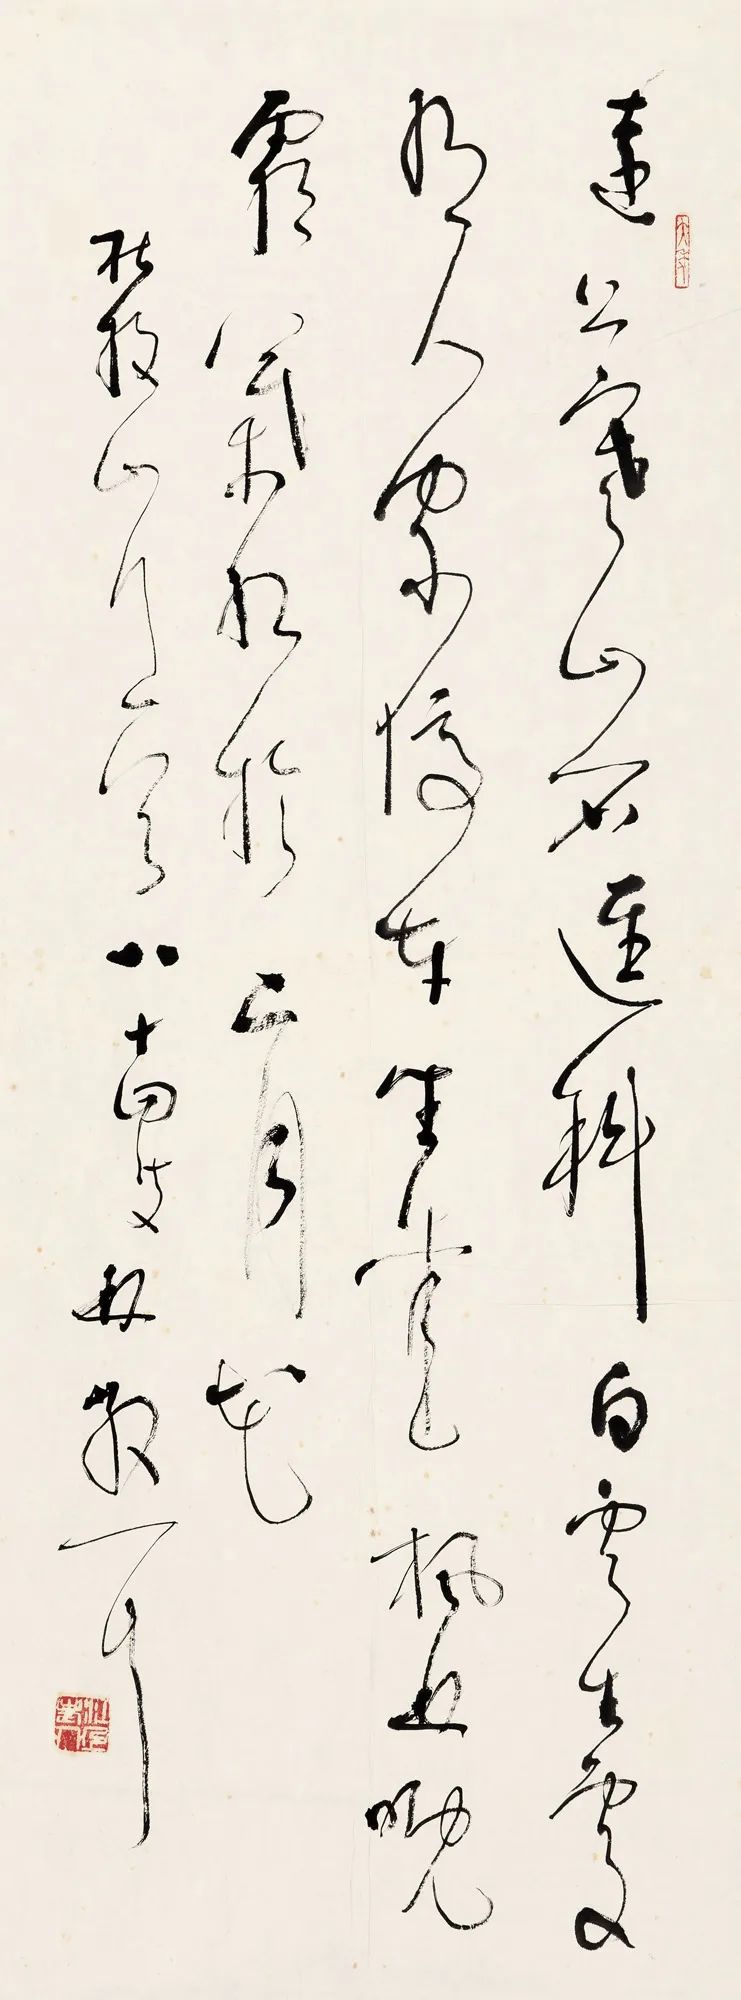 远上寒山石径斜白云生处
有人家停车坐爱枫林晚
霜叶红于二月花
杜牧山行一首八十四叟林散之耳